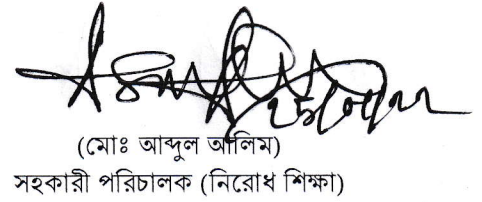 (মোঃ আব্দুল আলিম)
সহকারী পরিচালক (নিরোধ শিক্ষা)